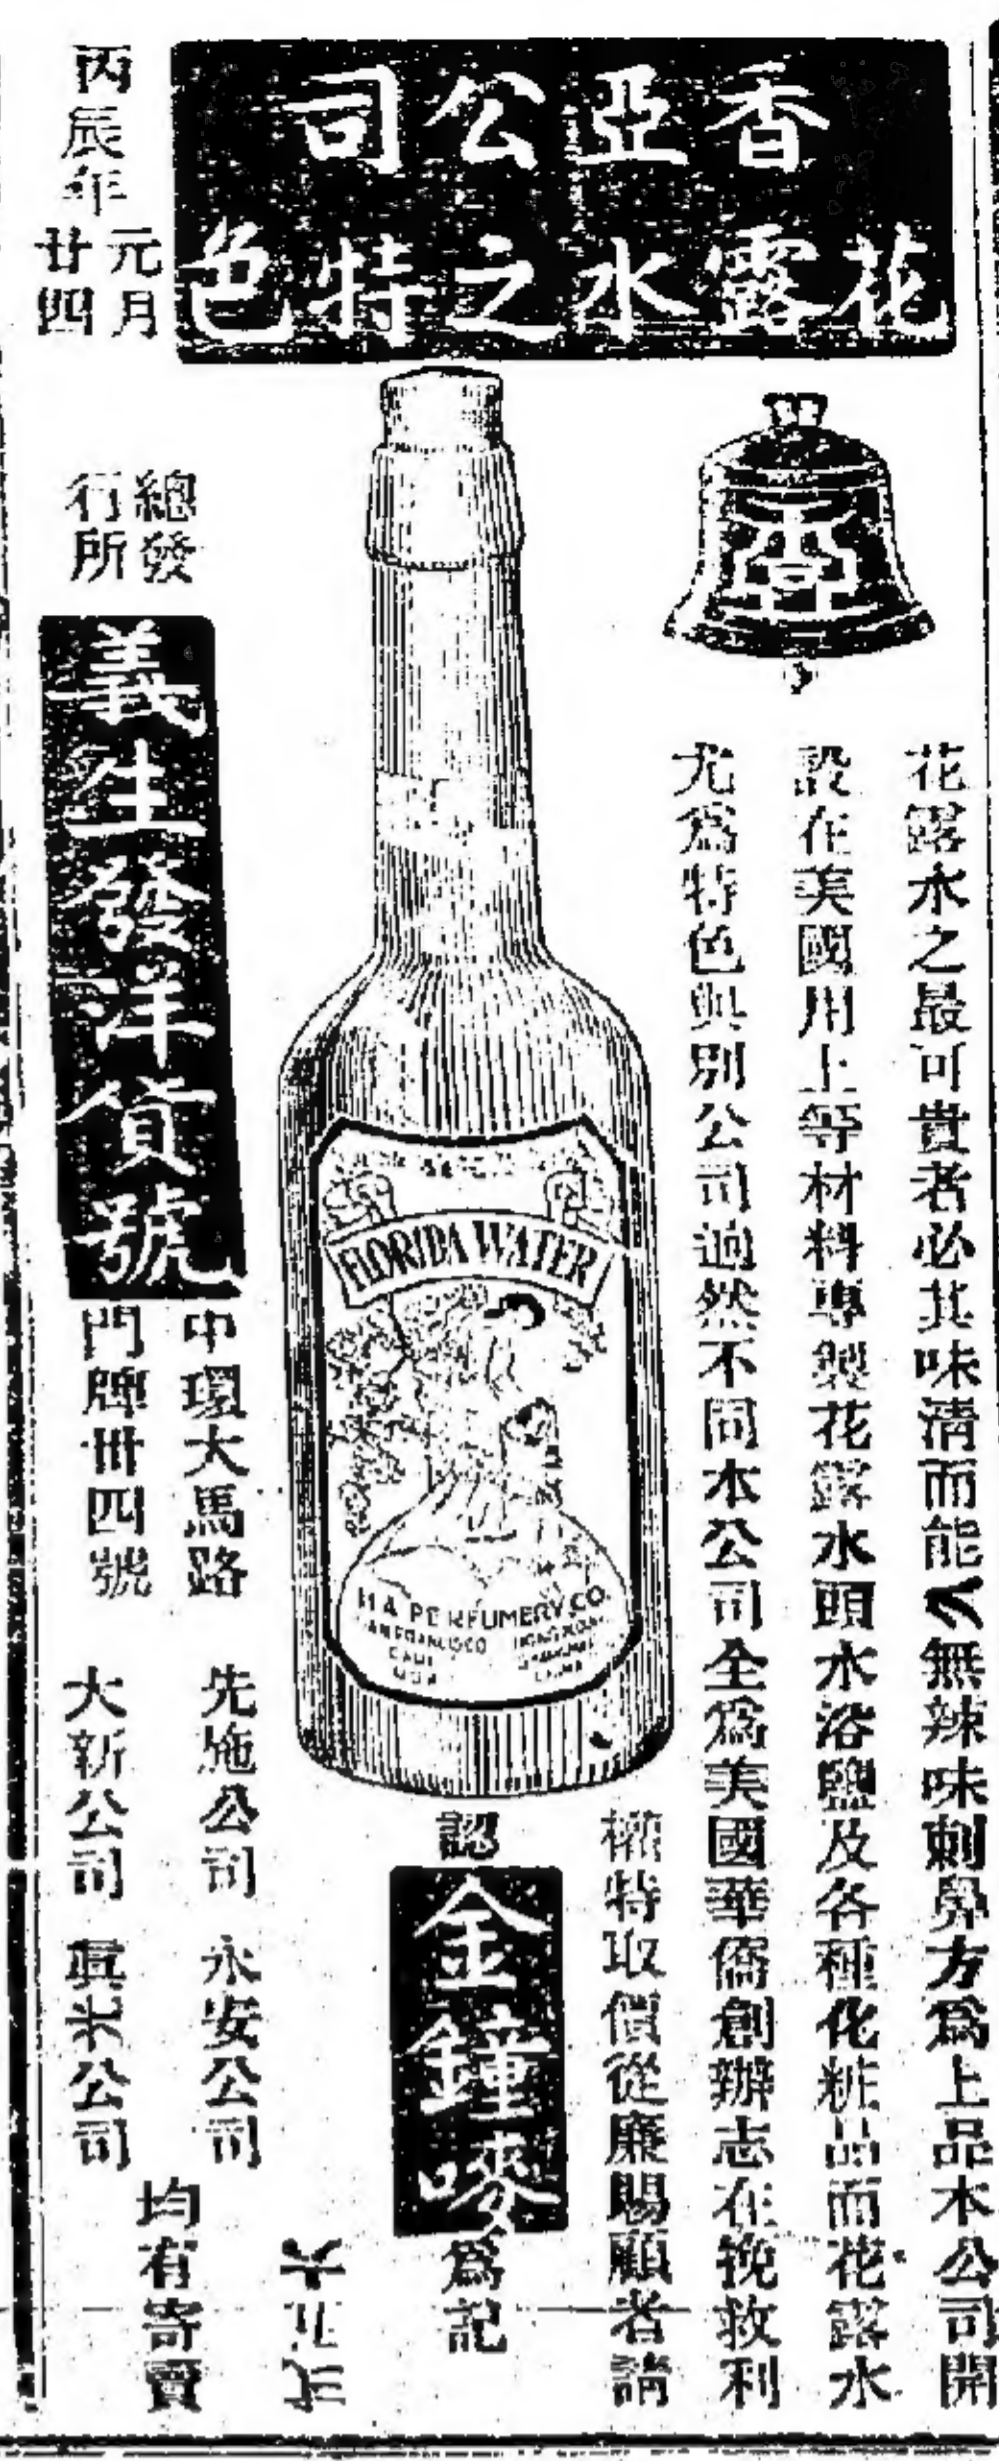 香亞公司
花露水之特色
香亞
花露水之最可貴者必其味清而能久無辣味刺鼻方爲上品本公司開
設在美國用上等材料專製花露水頭水浴鹽及各種化粧品而花露水
尤爲特色與別公司逈然不同本公司全爲美國華僑創辦志在挽救利
權特取價從廉賜顧者請
認金鐘嘜爲記
FLORIDA WATER
PERFUMERY CO.
SAN FRANCISCO
HONG KONG
CHINA
總發行所
義生發洋貨號
中環大馬路
門牌卌四號
先施公司 永安公司
大新公司 眞光公司
均有寄賣
丙辰年
元月
廿四